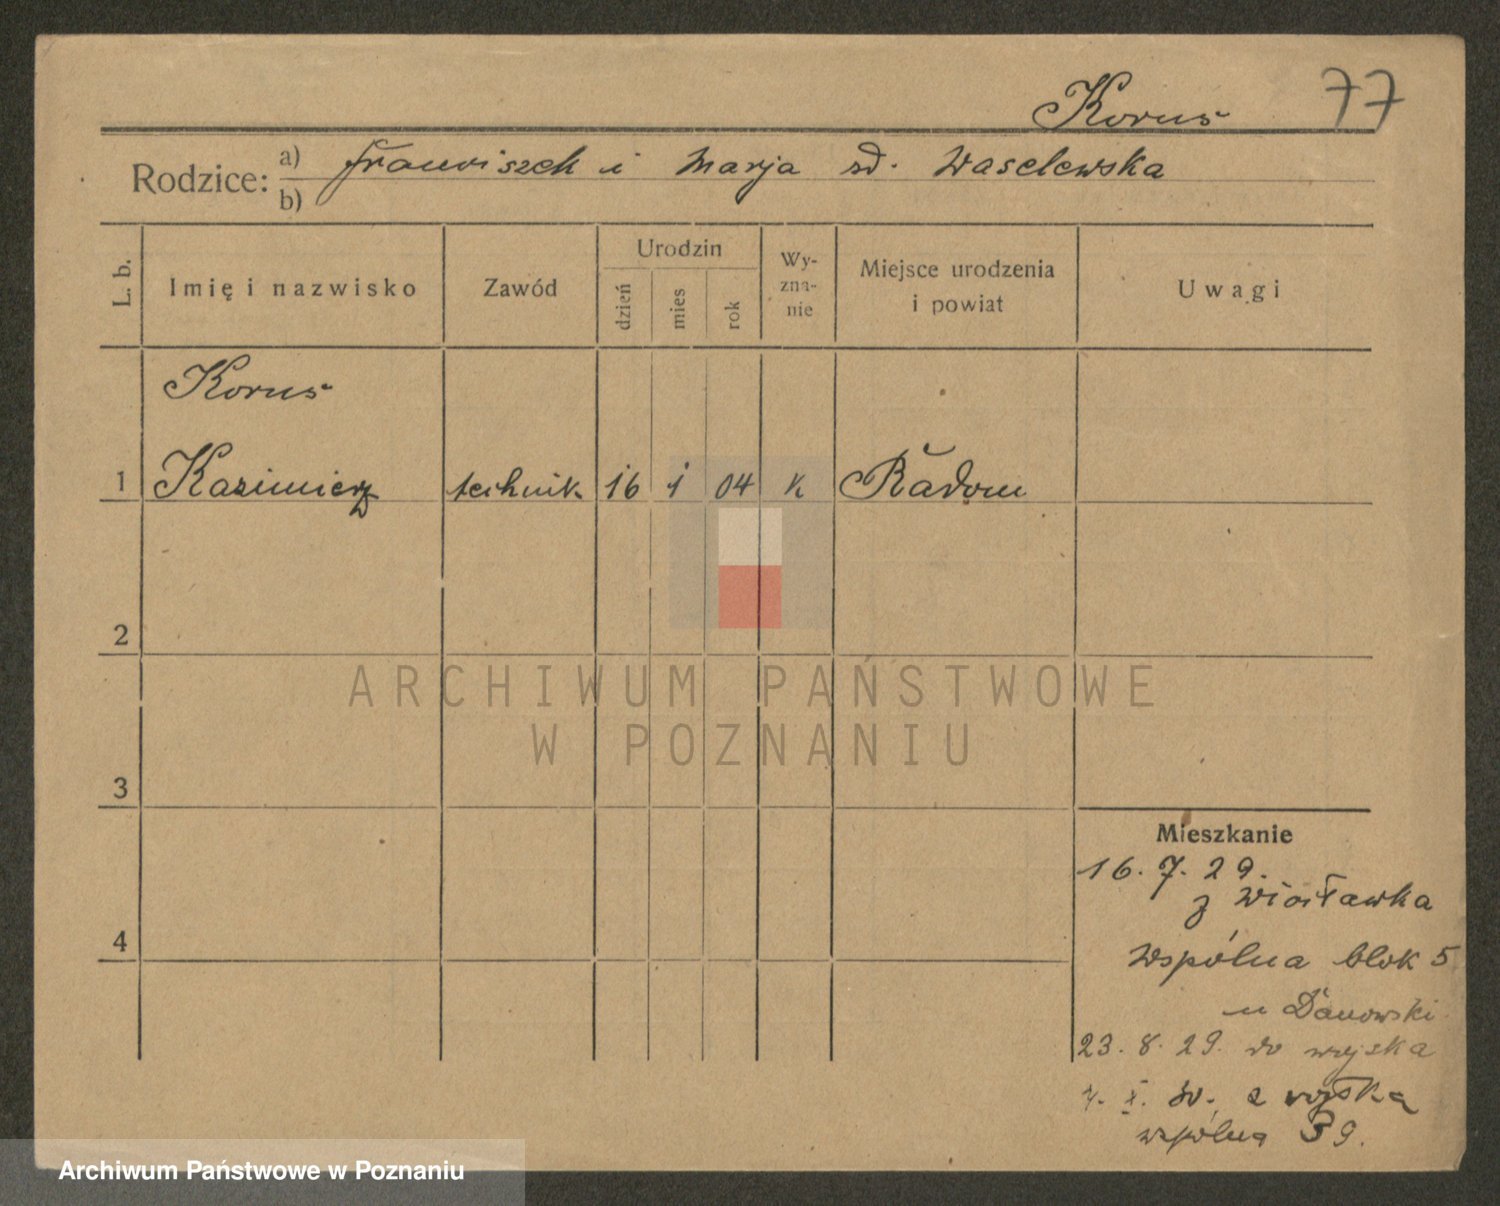 Korus 77
Rodzice: a) Franciszek i Marja zd. Waselewska
b)
L. b. Imię i nazwisko Zawód Urodzin dzień mies rok Wyznanie Miejsce urodzenia i powiat Uwagi
Korus
1 Kazimierz technik 16 1 04 K Radom
2
3
4
Mieszkanie
16. 7. 29.
z
Wspólna blok 5
u Danowski
23. 8. 29. do wojska
X. 30. z wojska
wspólna 39.
ARCHIWUM PAŃSTWOWE
W POZNANIU
Archiwum Państwowe w Poznaniu